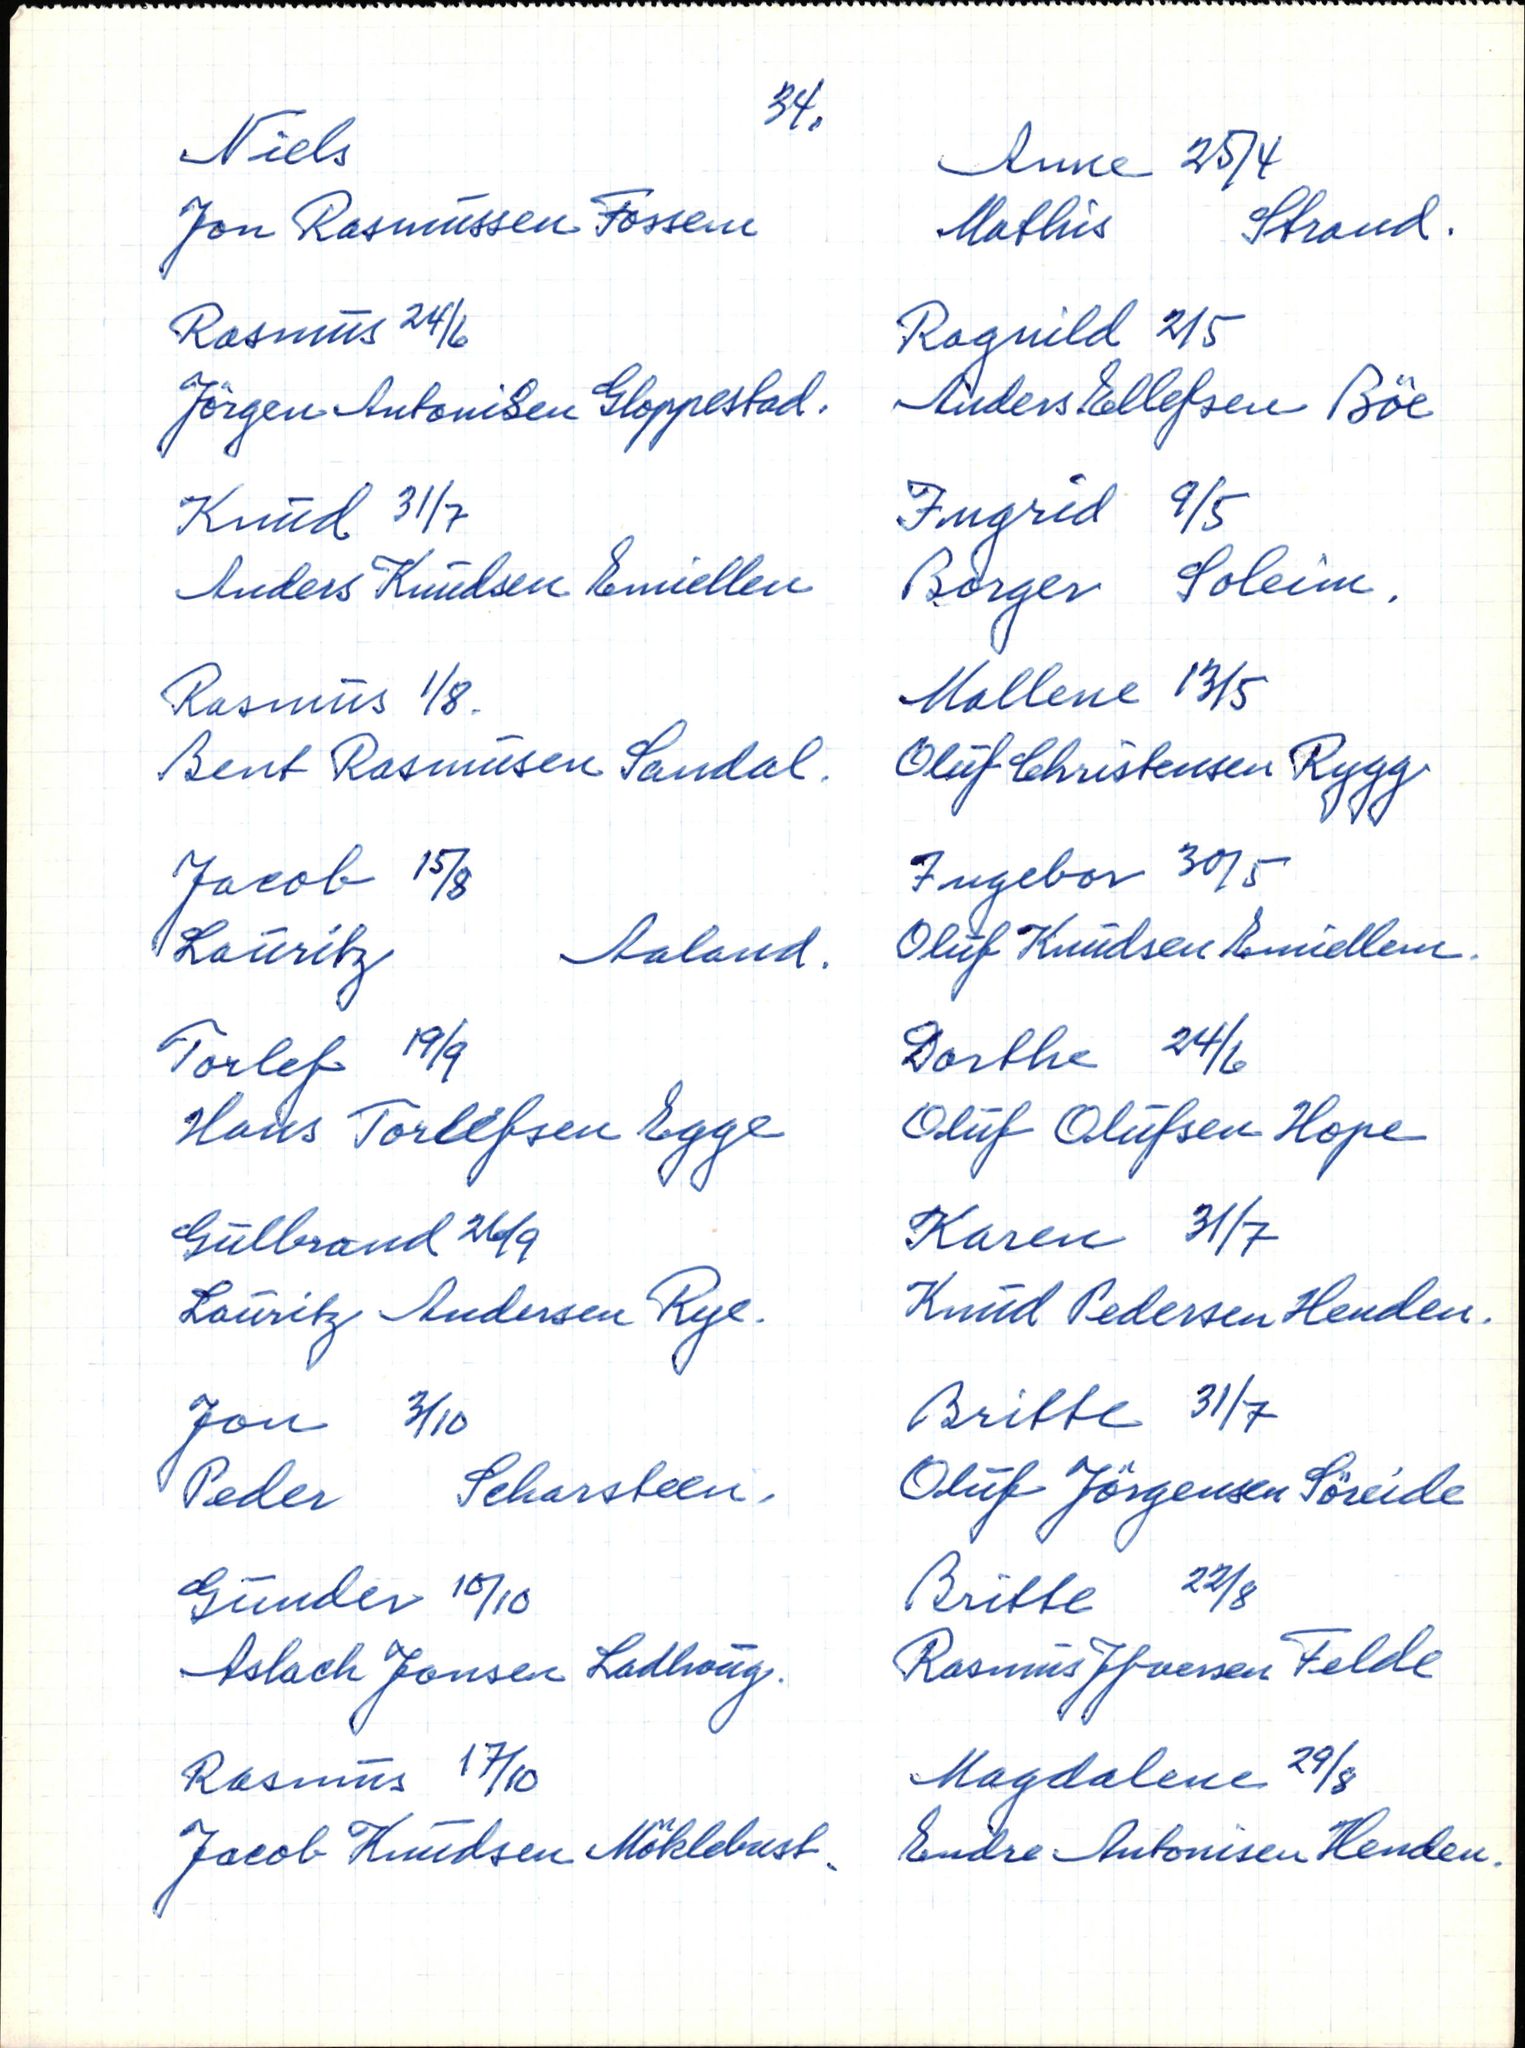 34.
Niels
Jon Rasmussen Fossem
Rasmus 24/6
Jörgen Antonisen Gloppestad.
Knud 31/7
Anders Knudsen Emiellen
Rasmus 1/8.
Bent Rasmusen Sandal.
Jacob 15/8
Lauritz Aaland.
Torlef 19/9
Hans Torlefsen Egge
Gulbrand 26/9
Lauritz Andersen Rye.
Jon 3/10
Peder Scharsteen.
Gunder 10/10
Aslach Jonsen Ladhoug.
Rasmus 17/10
Jacob Knudsen Möklebust.
Anne 25/4
Mathis Strand.
Ragnild 2/5
Anders Ellefsen Böe
Ingrid 9/5
Borger Soleim.
Mallene 13/5
Oluf Christensen Rygg
Ingebor 30/5
Oluf Knudsen Emiellem.
Dorthe 24/6
Oluf Olufsen Hope
Karen 31/7
Knud Pedersen Henden.
Britte 31/7
Oluf Jörgensen Söreide
Britte 22/8
Rasmus Ifversen Felde
Magdalene 29/8
Endre Antonisen Henden.